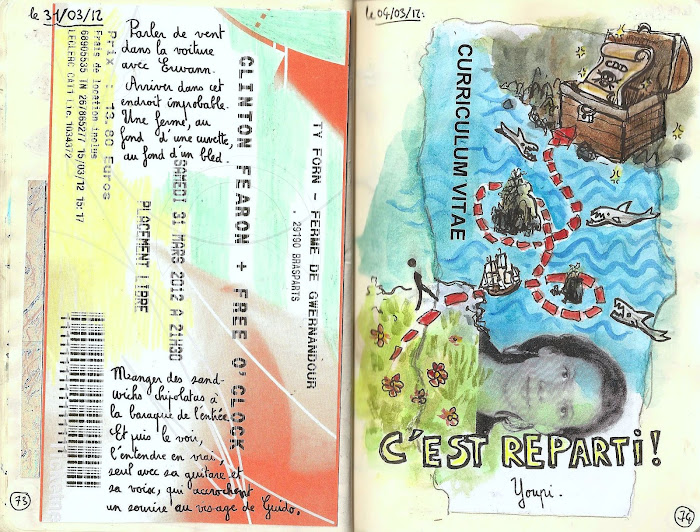 le 31/03/12
Parler de vent
dans la voiture
avec Erwann.
Arriver dans cet
endroit improbable.
Une ferme, au
fond d'une cuvette,
au fond d'un bled.
TY FORN - FERME DE GWERNANDOUR
29190 BRASPARTS
CLINTON FEARON + FREE O'CLOCK
SAMEDI 31 MARS 2012 A 21H30
PLACEMENT LIBRE
Prix : 13.80 Euros
Frais de location inclus
68905535 TN 267865277 15/03/12 15:17
LECLERC CATI Lic. 1034372
Manger des sand-
wichs chipolatas à
la baraque de l'entrée.
Et puis le voir,
l'entendre en vrai,
seul avec sa guitare et
sa voix, qui accrochent
un sourire au visage de Guido.
73
le 04/03/12:
CURRICULUM VITAE
C'EST REPARTI !
Youpi.
74